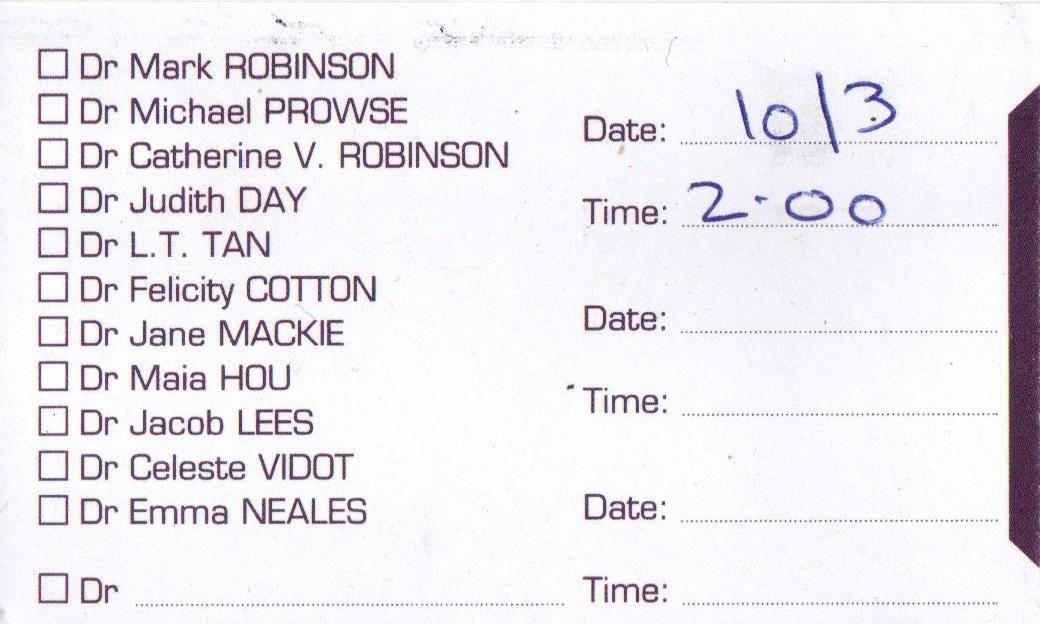 Dr Mark ROBINSON
Dr Michael PROWSE
Dr Catherine V. ROBINSON
Dr Judith DAY
Dr L.T. TAN
Dr Felicity COTTON
Dr Jane MACKIE
Dr Maia HOU
Dr Jacob LEES
Dr Celeste VIDOT
Dr Emma NEALES
Dr
Date: 10/3
Time: 2.00
Date:
Time:
Date:
Time: